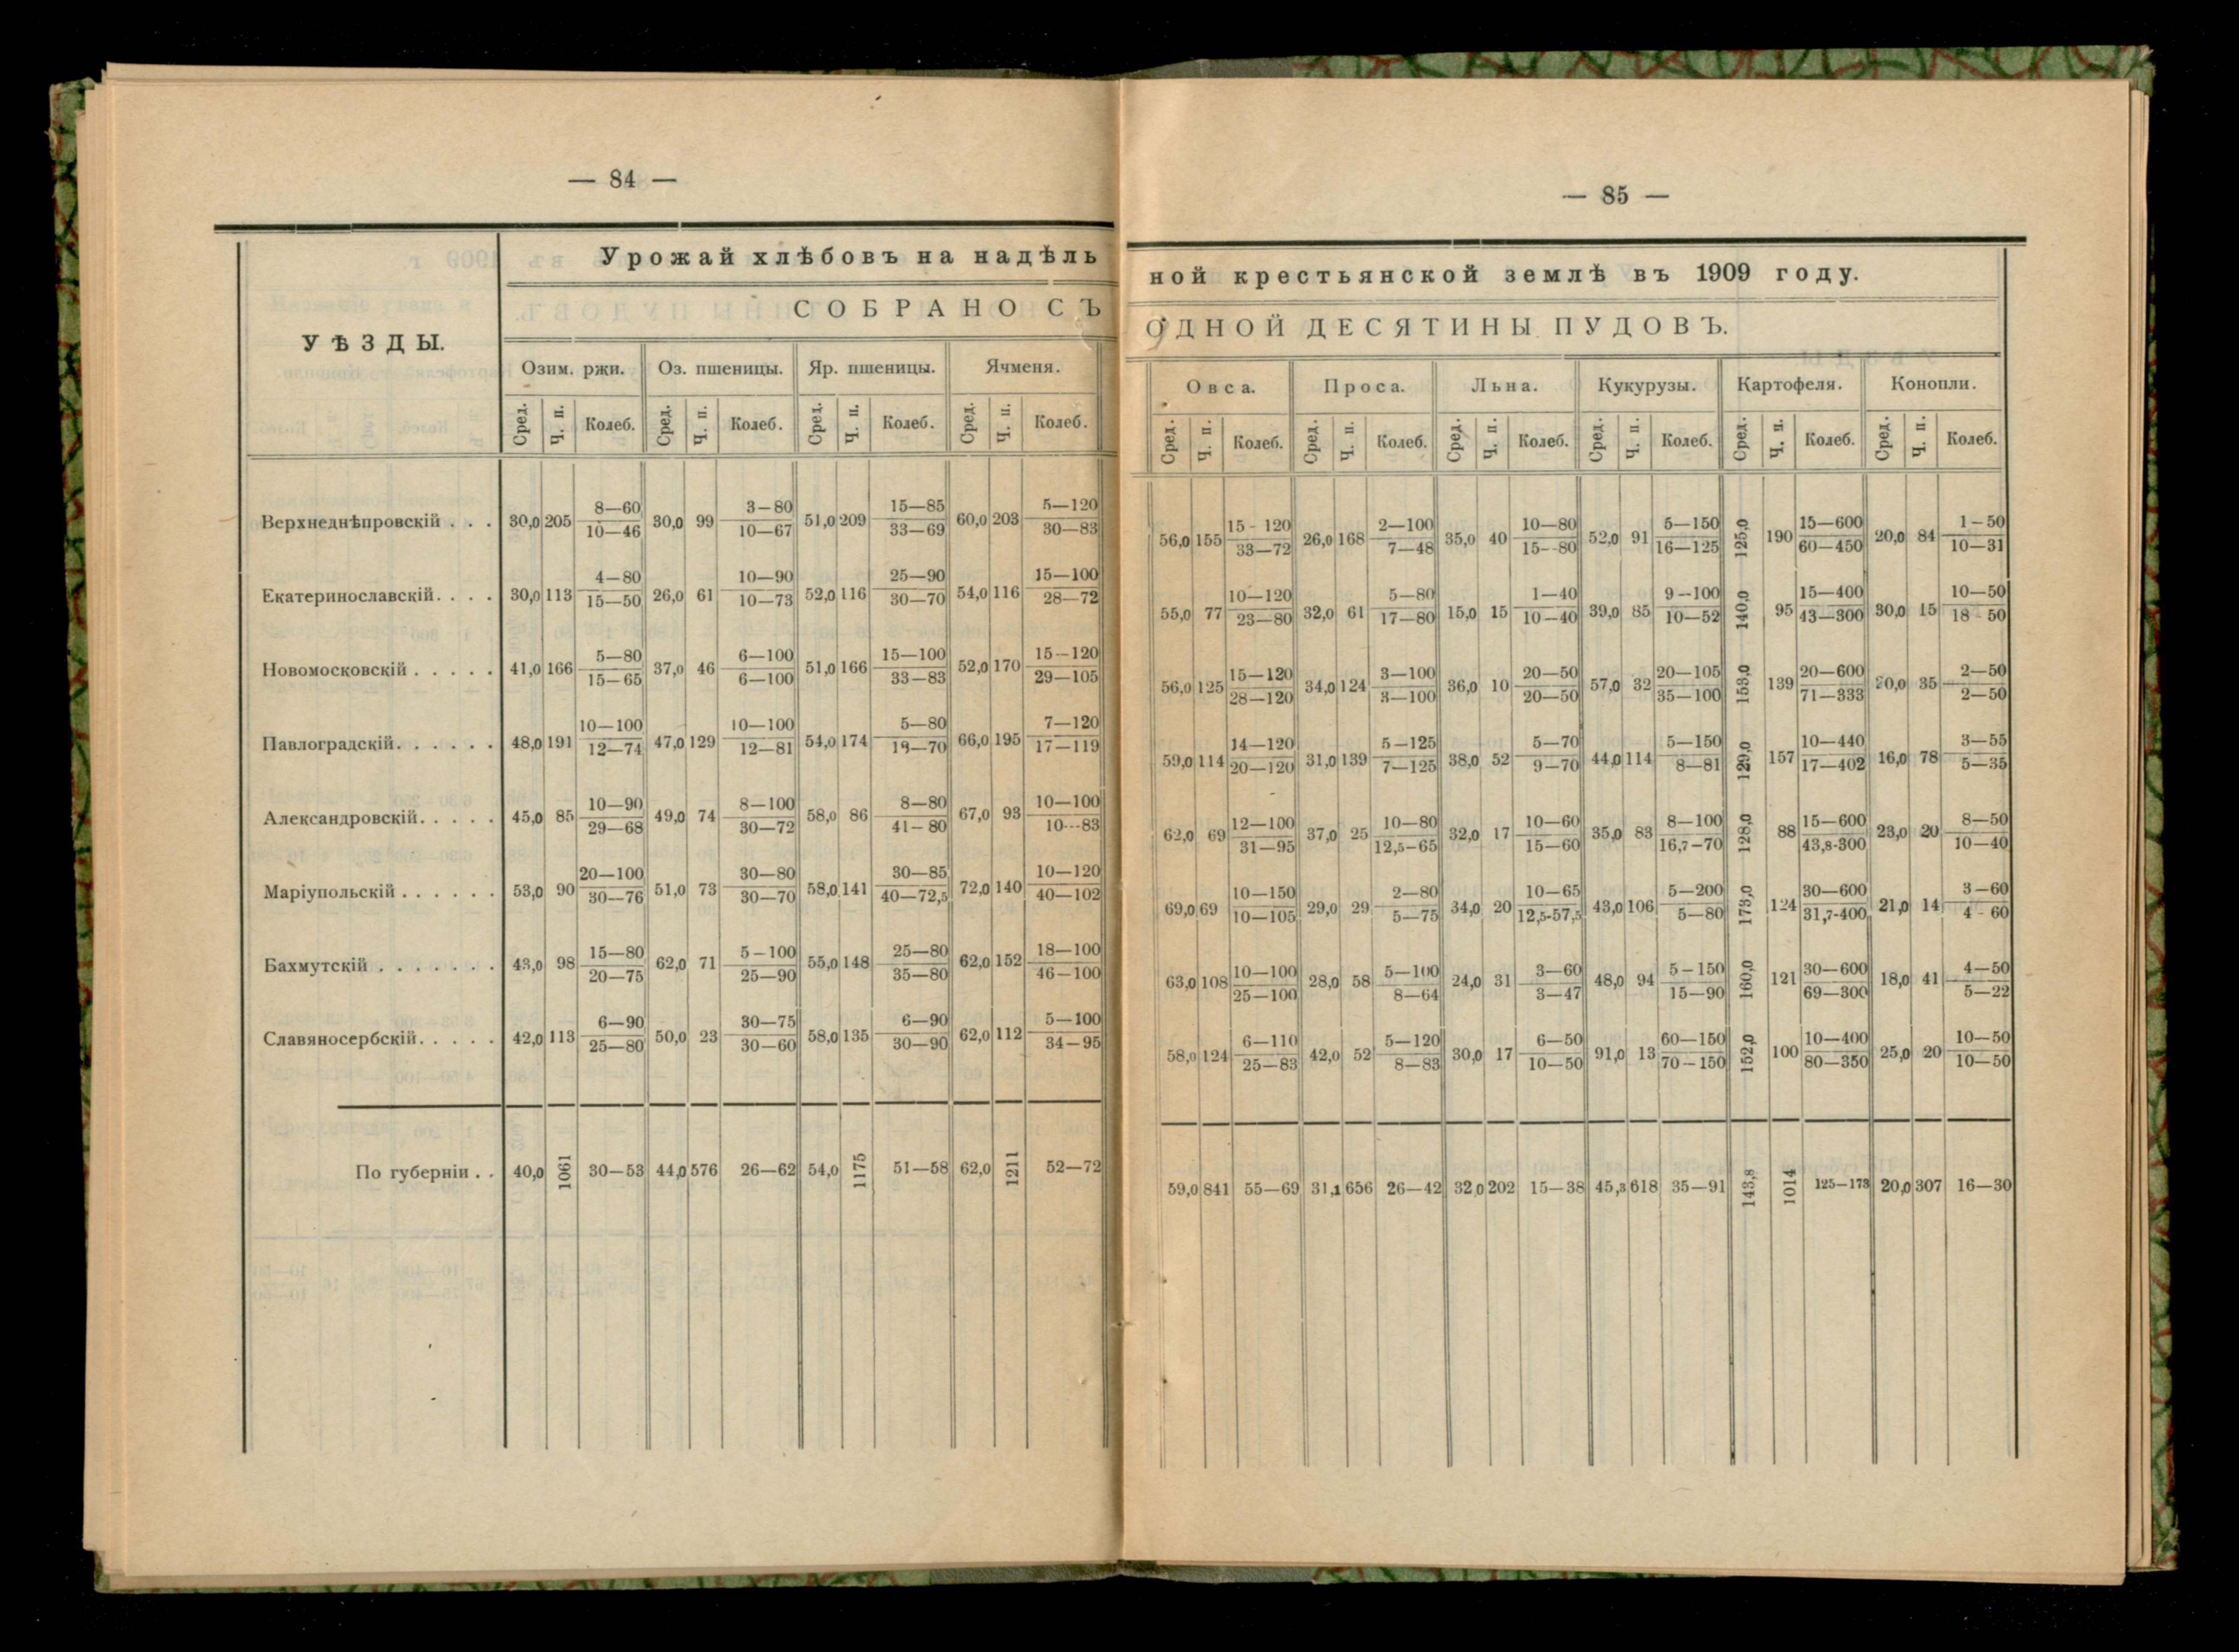 — 84 —
Урожай хлѣбовъ на надѣль
СОБРАНО СЪ
УѢЗДЫ.
Озим. ржи. Оз. пшеницы. Яр. пшеницы. Ячменя.
Сред. Ч. п. Колеб. Сред. Ч. п. Колеб. Сред. Ч. п. Колеб. Сред. Ч. п. Колеб.
8—60 3—80 15—85 5—120
Верхнеднѣпровскій . . . 30,0 205 30,0 99 51,0 209 60,0 203
10—46 10—67 33—69 30—83
4—80 10—90 25—90 15—100
Екатеринославскій. . . . 30,0 113 26,0 61 52,0 116 54,0 116
15—50 10—73 30—70 28—72
5—80 6—100 15—100 15—120
Новомосковскій . . . . . 41,0 166 37,0 46 51,0 166 52,0 170
15—65 6—100 33—83 29—105
10—100 10—100 5—80 7—120
Павлоградскій. . . . . . 48,0 191 47,0 129 54,0 174 66,0 195
12—74 12—81 17—119
10—90 8—100 8—80 10—100
Александровскій. . . . . 45,0 85 49,0 74 58,0 86 67,0 93
29—68 30—72 41—80 10—83
20—100 30—80 30—85 10—120
Маріупольскій . . . . . . 53,0 90 51,0 73 58,0 141 72,0 140
30—76 30—70 40—72,5 40—102
15—80 5—100 25—80 18—100
Бахмутскій . . . . . . . 43,0 98 62,0 71 55,0 148 62,0 152
20—75 25—90 35—80 46—100
6—90 30—75 6—90 5—100
Славяносербскій. . . . . 42,0 113 50,0 23 58,0 135 62,0 112
25—80 30—60 30—90 34—95
По губерніи . . 40,0 1061 30—53 44,0 576 26—62 54,0 1175 51—58 62,0 1211 52—72
— 85 —
ной крестьянской землѣ въ 1909 году.
ОДНОЙ ДЕСЯТИНЫ ПУДОВЪ.
Овса. Проса. Льна. Кукурузы. Картофеля. Конопли.
Сред. Ч. п. Колеб. Сред. Ч. п. Колеб. Сред. Ч. п. Колеб. Сред. Ч. п. Колеб. Сред. Ч. п. Колеб. Сред. Ч. п. Колеб.
15-120 2—100 10—80 5—150 15—600 1—50
56,0 155 26,0 168 35,0 40 52,0 91 125,0 190 20,0 84
33—72 7—48 15--80 16—125 60—450 10—31
10—120 5—80 1—40 9--100 15—400 10—50
55,0 77 32,0 61 15,0 15 39,0 85 140,0 95 30,0 15
23—80 17—80 10—40 10—52 43—300 18-50
15—120 3—100 20—50 20—105 20—600 2—50
56,0 125 34,0 124 36,0 10 57,0 32 153,0 139 35
28—120 3—100 20—50 35—100 71—333 2—50
14—120 5—125 5—70 5—150 10—440 3—55
59,0 114 31,0 139 38,0 52 44,0 114 129,0 157 16,0 78
20—120 7—125 9—70 8—81 17—402 5—35
12—100 10—80 10—60 8—100 15—600 8—50
62,0 69 37,0 25 32,0 17 35,0 83 128,0 88 23,0 20
31—95 12,5—65 15—60 16,7—70 43,8-300 10—40
10—150 2—80 10—65 5—200 30—600 3—60
69,0 69 29,0 29 34,0 20 43,0 106 173,0 124 21,0 14
10—105 5—75 12,5-57,5 5—80 31,7-400 4-60
10—100 5—100 3—60 5—150 30—600 4—50
63,0 108 28,0 58 24,0 31 48,0 94 160,0 121 18,0 41
25—100 8—64 3—47 15—90 69—300 5—22
6—110 5—120 6—50 60—150 10—400 10—50
58,0 124 42,0 52 30,0 17 91,0 13 152,0 100 25,0 20
25—83 8—83 10—50 70—150 80—350 10—50
59,0 841 55—69 31,1 656 26—42 32,0 202 15—38 45,3 618 35—91 143,8 1014 125—173 20,0 307 16—30